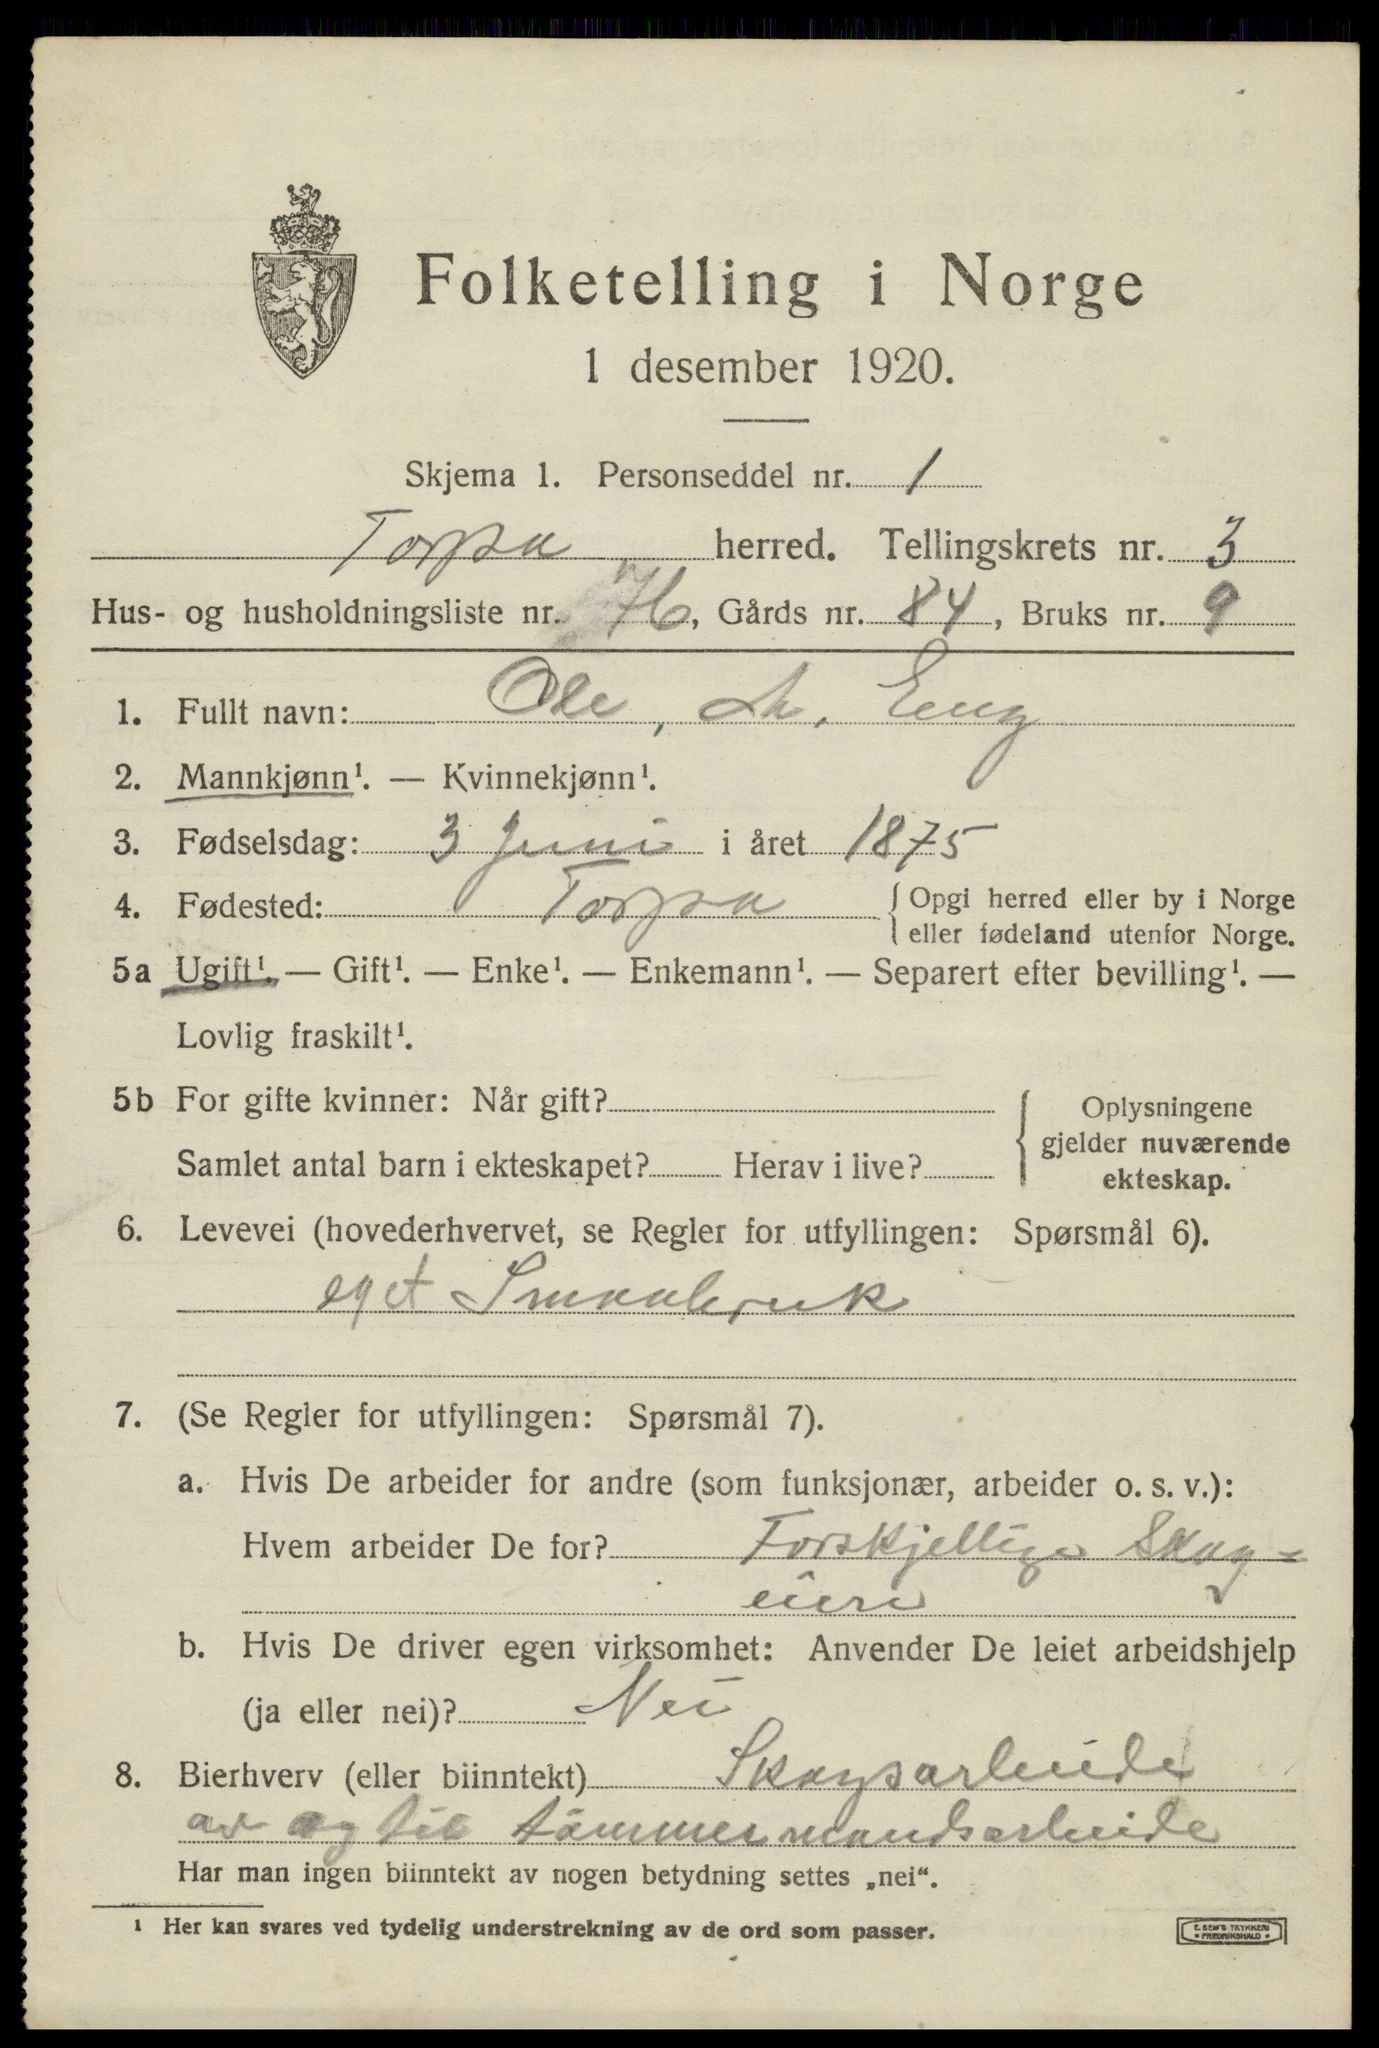 Folketelling i Norge
1 desember 1920.
Skjema 1. Personseddel nr. 1
Torpa herred. Tellingskrets nr. 3
Hus- og husholdningsliste nr. 76, Gårds nr. 84, Bruks nr. 9
1. Fullt navn: Ole, Eng
2. Mannkjønn¹. — Kvinnekjønn¹.
3. Fødselsdag: 3 Juni i året 1875
4. Fødested: Torpa { Opgi herred eller by i Norge
eller fødeland utenfor Norge.
5a Ugift¹. — Gift¹. — Enke¹. — Enkemann¹. — Separert efter bevilling¹. —
Lovlig fraskilt¹.
5b For gifte kvinner: Når gift? { Oplysningene
gjelder nuværende
Samlet antal barn i ekteskapet? Herav i live?
ekteskap.
6. Levevei (hovederhvervet, se Regler for utfyllingen: Spørsmål 6).
eget Smaabruk
7. (Se Regler for utfyllingen: Spørsmål 7).
a. Hvis De arbeider for andre (som funksjonær, arbeider o. s. v.):
Hvem arbeider De for? Forskjellige Skog=
eiere
b. Hvis De driver egen virksomhet: Anvender De leiet arbeidshjelp
(ja eller nei)? Nei
8. Bierhverv (eller biinntekt) Skogsarbeide
av og til tömmermandsarbeide
Har man ingen biinntekt av nogen betydning settes „nei“.
¹ Her kan svares ved tydelig understrekning av de ord som passer.
E. SEM'S TRYKKERI
• FREDRIKSHALD •